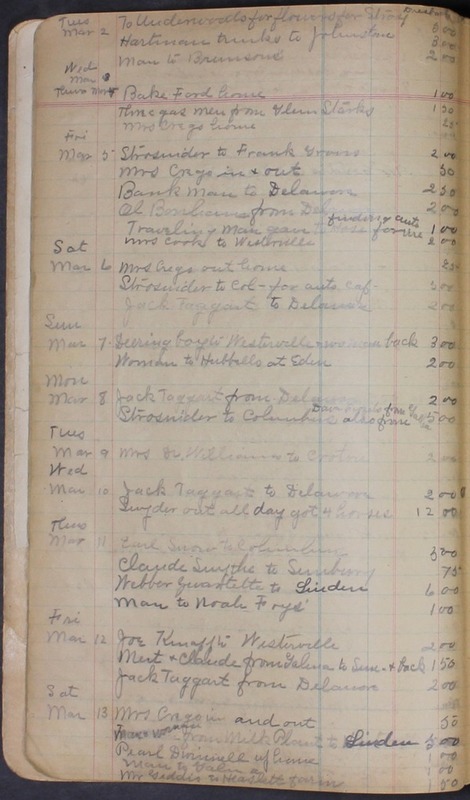 Tues
Mar 2 To Underwoods for flowers for 8 00
Hartman trunks to Johnstown 3 00
Man to Brunsons 2 00
Wed
Mar 3
Thurs Mar 4 Bake Ford home 1 00
Three gas men from Starks 1 50
Mrs Crego home 25
Fri
Mar 5 Strosnider to Frank 2 00
Mrs Crego in & out 50
Bank Man to Delaware 2 50
Al Bonham from Del 2 00
finding auto
Traveling Man to for tire 1 00
Mrs Cooke to Westerville 2 00
Sat
Mar 6 Mrs Crego out home 25
Strosnider to Col - for auto 5 00
Jack Taggart to Delaware 2 00
Sun
Mar 7 Deering boy to Westerville back 3 00
Woman to Hubbells at Eden 2 00
Mon
Mar 8 Jack Taggart from Delaware 2 00
Strosnider to Columbus also from 5 00
Tues
Mar 9 Mrs Dr. Williams to Croton 2 00
Wed
Mar 10 Jack Taggart to Delaware 2 00
Snyder out all day got 4 horses 12 00
Thurs
Mar 11 Earl Snow to Columbus 5 00
Claude Smythe to Sunbury 75
Webber Quartette to Linden 6 00
Man to Noah Frys 1 00
Fri
Mar 12 Joe Knapp to Westerville 2 00
Mert & Claude from Galena to Sun - & Back 1 50
Jack Taggart from Delaware 2 00
Sat
Mar 13 Mrs Crego in and out 50
from Milk Plant to Linden 5 00
Pearl home 1 00
Man to 1 00
Mr to farm 1 50